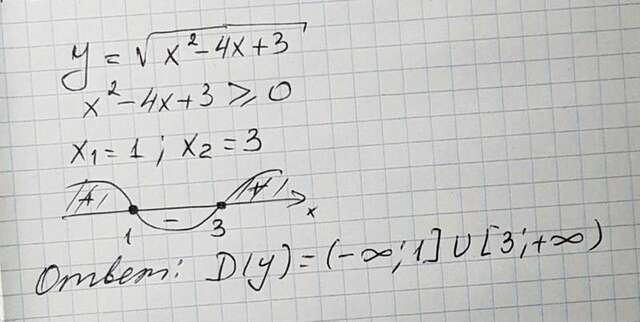 y = √x² - 4x + 3
x² - 4x + 3 ≥ 0
x₁ = 1 ; x₂ = 3
+ - + x
1 3
Ответ: D(y) = (-∞; 1] ∪ [3; +∞)